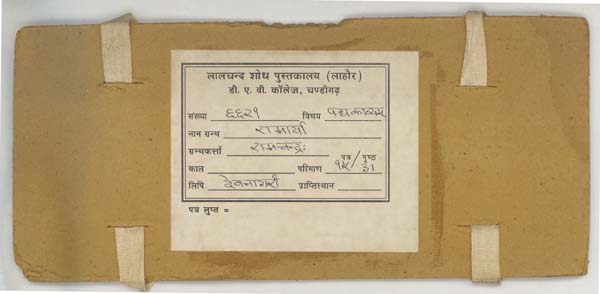 लालचन्द शोध पुस्तकालय (लाहौर)
डी. ए. वी. कॉलेज, चण्डीगढ़
संख्या ६६२१ विषय पद्यकाव्यम्
नाम ग्रन्थ रामार्या
ग्रन्थकर्त्ता रामचन्द्रः
काल परिमाण पत्र / पृष्ठ
लिपि देवनागरी प्राप्तिस्थान
पत्र लुप्त =